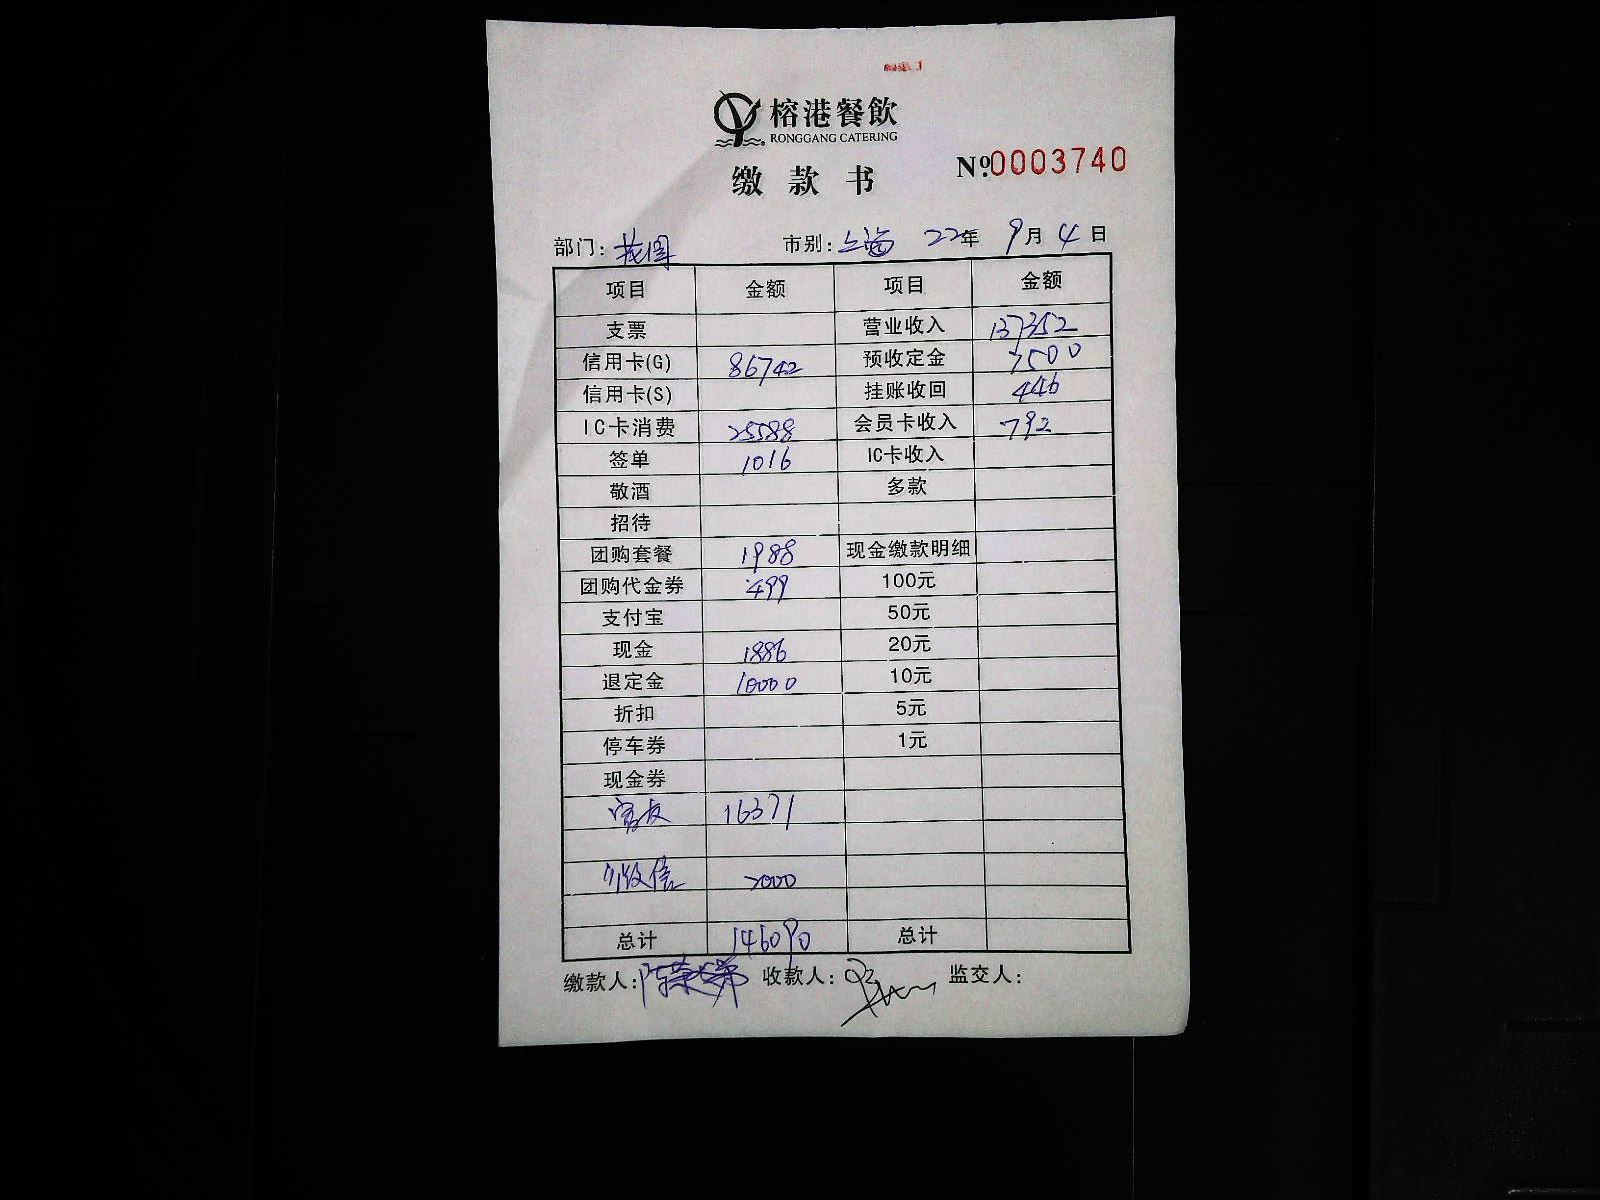 榕港餐飲
RONGGANG CATERING
缴款书
Nº0003740
部门: 市别:上海 22年 9月 4日
项目 金额 项目 金额
支票 营业收入 137352
信用卡(G) 86742 预收定金 7500
信用卡(S) 挂账收回 446
IC卡消费 25588 会员卡收入 792
签单 1016 IC卡收入
敬酒 多款
招待
团购套餐 1988 现金缴款明细
团购代金券 499 100元
支付宝 50元
现金 1886 20元
退定金 10000 10元
折扣 5元
停车券 1元
现金券
16371
微信 2000
总计 146090 总计
缴款人: 收款人: 监交人: